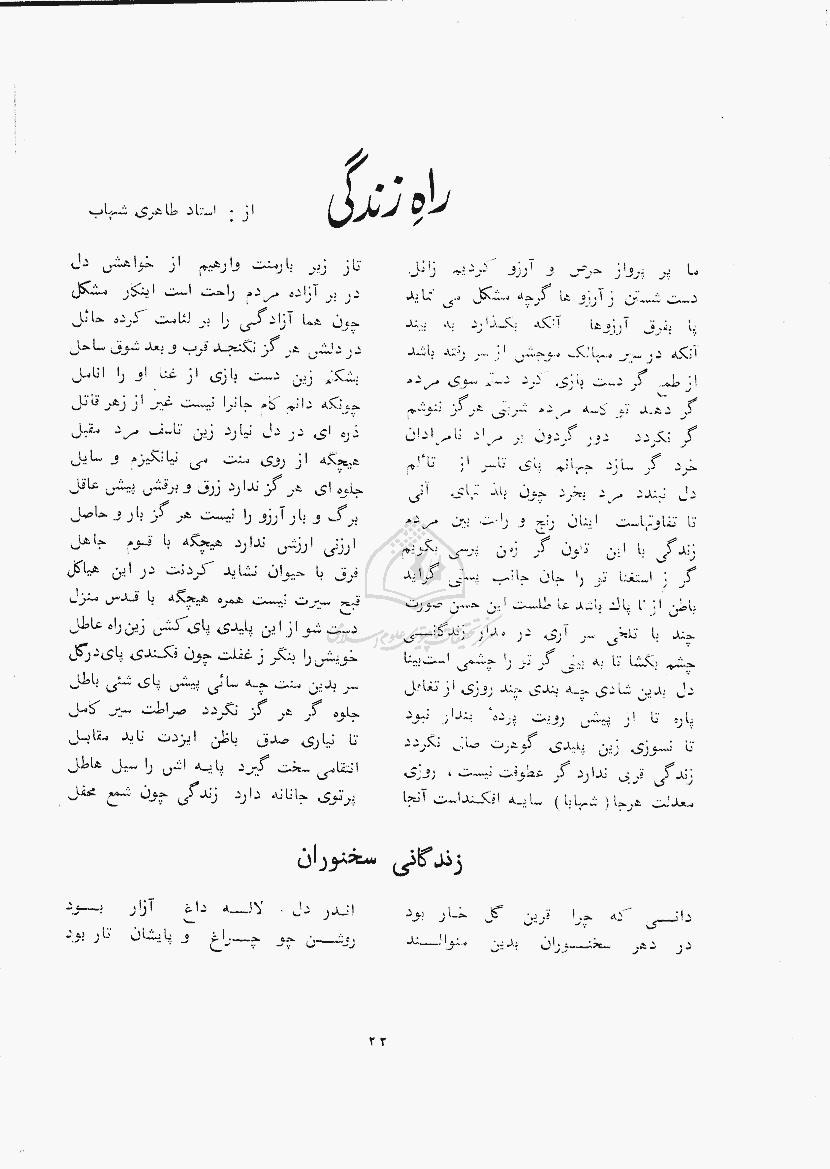 راهِ زندگی
از : استاد طاهری شهاب
ما پر پرواز حرص و آرزو کردیم زائل تاز زیر بارمنت وارهیم از خواهش دل
دست شستن ز آرزو ها گرچه مشکل می نماید در بر آزاده مردم راحت است اینکار مشکل
پا بفرق آرزوها آنکه بگذارد به بیند چون هما آزادگی را بر لئامت کرده حائل
آنکه در سیر موجش از سر رفته باشد در دلش هر گز نگنجد قرب و بعد شوق ساحل
از طمع گر دست یازی کرد سوی مرده بشکنم زین دست یازی از غنا او را انامل
گر دهند تو کاسه مرده شربتی هرگز ننوشم چونکه دانم کام جانرا نیست غیر از زهر قاتل
گر نگردد دور گردون بر مراد نامرادان ذره ای در دل نیارد زین تاسف مرد مقبل
خرد گر سازد جهانم پای تاسر از تألم هیچگه از روی منت می نیانگیزم و سایل
دل نبندد مرد بخرد چون بلذتهای آنی جلوه ای هر گز ندارد زرق و برقش پیش عاقل
تا تفاوتهاست اینان رنج و راحت بین مردم برگ و بار آرزو را نیست هر گز بار و حاصل
زندگی با این قانون گر زمن پرسی بگویم ارزنی ارزش ندارد هیچگه با قوم جاهل
گر ز استغنا تو را جان جانب پستی گراید فرق با حیوان نشاید کردنت در این هیاکل
باطن ار نا پاك باشد عاطلست این حسن صورت قبح سیرت نیست همره هیچگه با قدس منزل
چند با تلخی سر آری در مدار زندگانی دست شو از این پلیدی پای کش زین راه عاطل
چشم بگشا تا به بینی گر تو را چشمی است بینا خویش را بنگر ز غفلت چون فکندی پای در گل
دل بدین شادی چه بندی چند روزی از تغافل سر بدین منت چه سائی پیش پای شئی باطل
پاره تا از پیش رویت پردهٔ پندار نبود جلوه گر هر گز نگردد صراطت سیر کامل
تا نسوزی زین پلیدی گوهرت صافی نگردد تا نیاری صدق باطن ایزدت ناید مقابل
زندگی قربی ندارد گر عطوفت نیست ، روزی انتقامی سخت گیرد پایه اش را سیل هاطل
معدلت هرجا ( شهابا ) سایه افکنداست آنجا پرتوی جانانه دارد زندگی چون شمع محفل
زندگانی سخنوران
دانی که چرا قرین گل خار بود اندر دل لاله داغ آزار بود
در دهر سخنوران بدین منوالند روشن چو چراغ و پایشان تار بود
۲۲